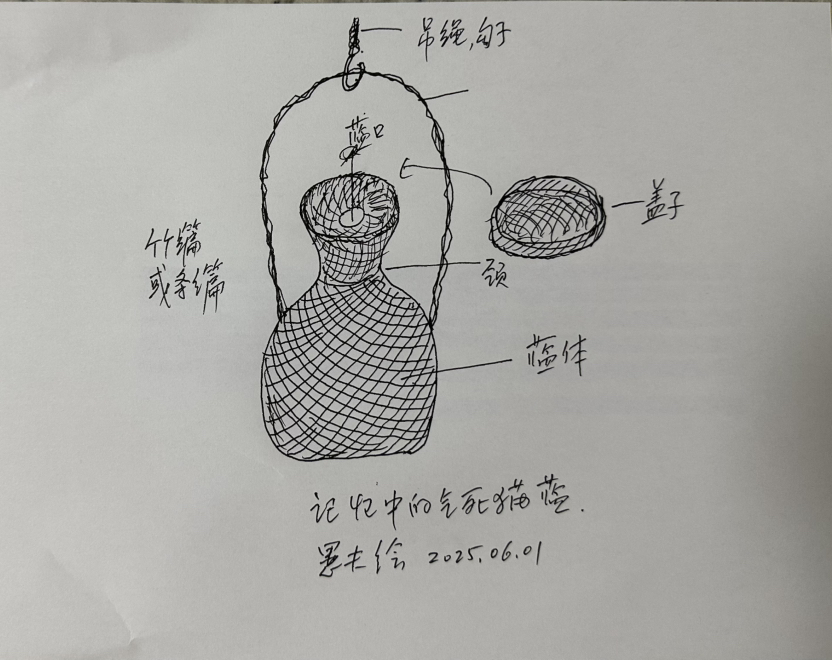 吊绳,勾子
蓝口
盖子
竹编
或条编
颈
蓝体
记忆中的气死猫蓝.
愚夫绘 2025.06.01